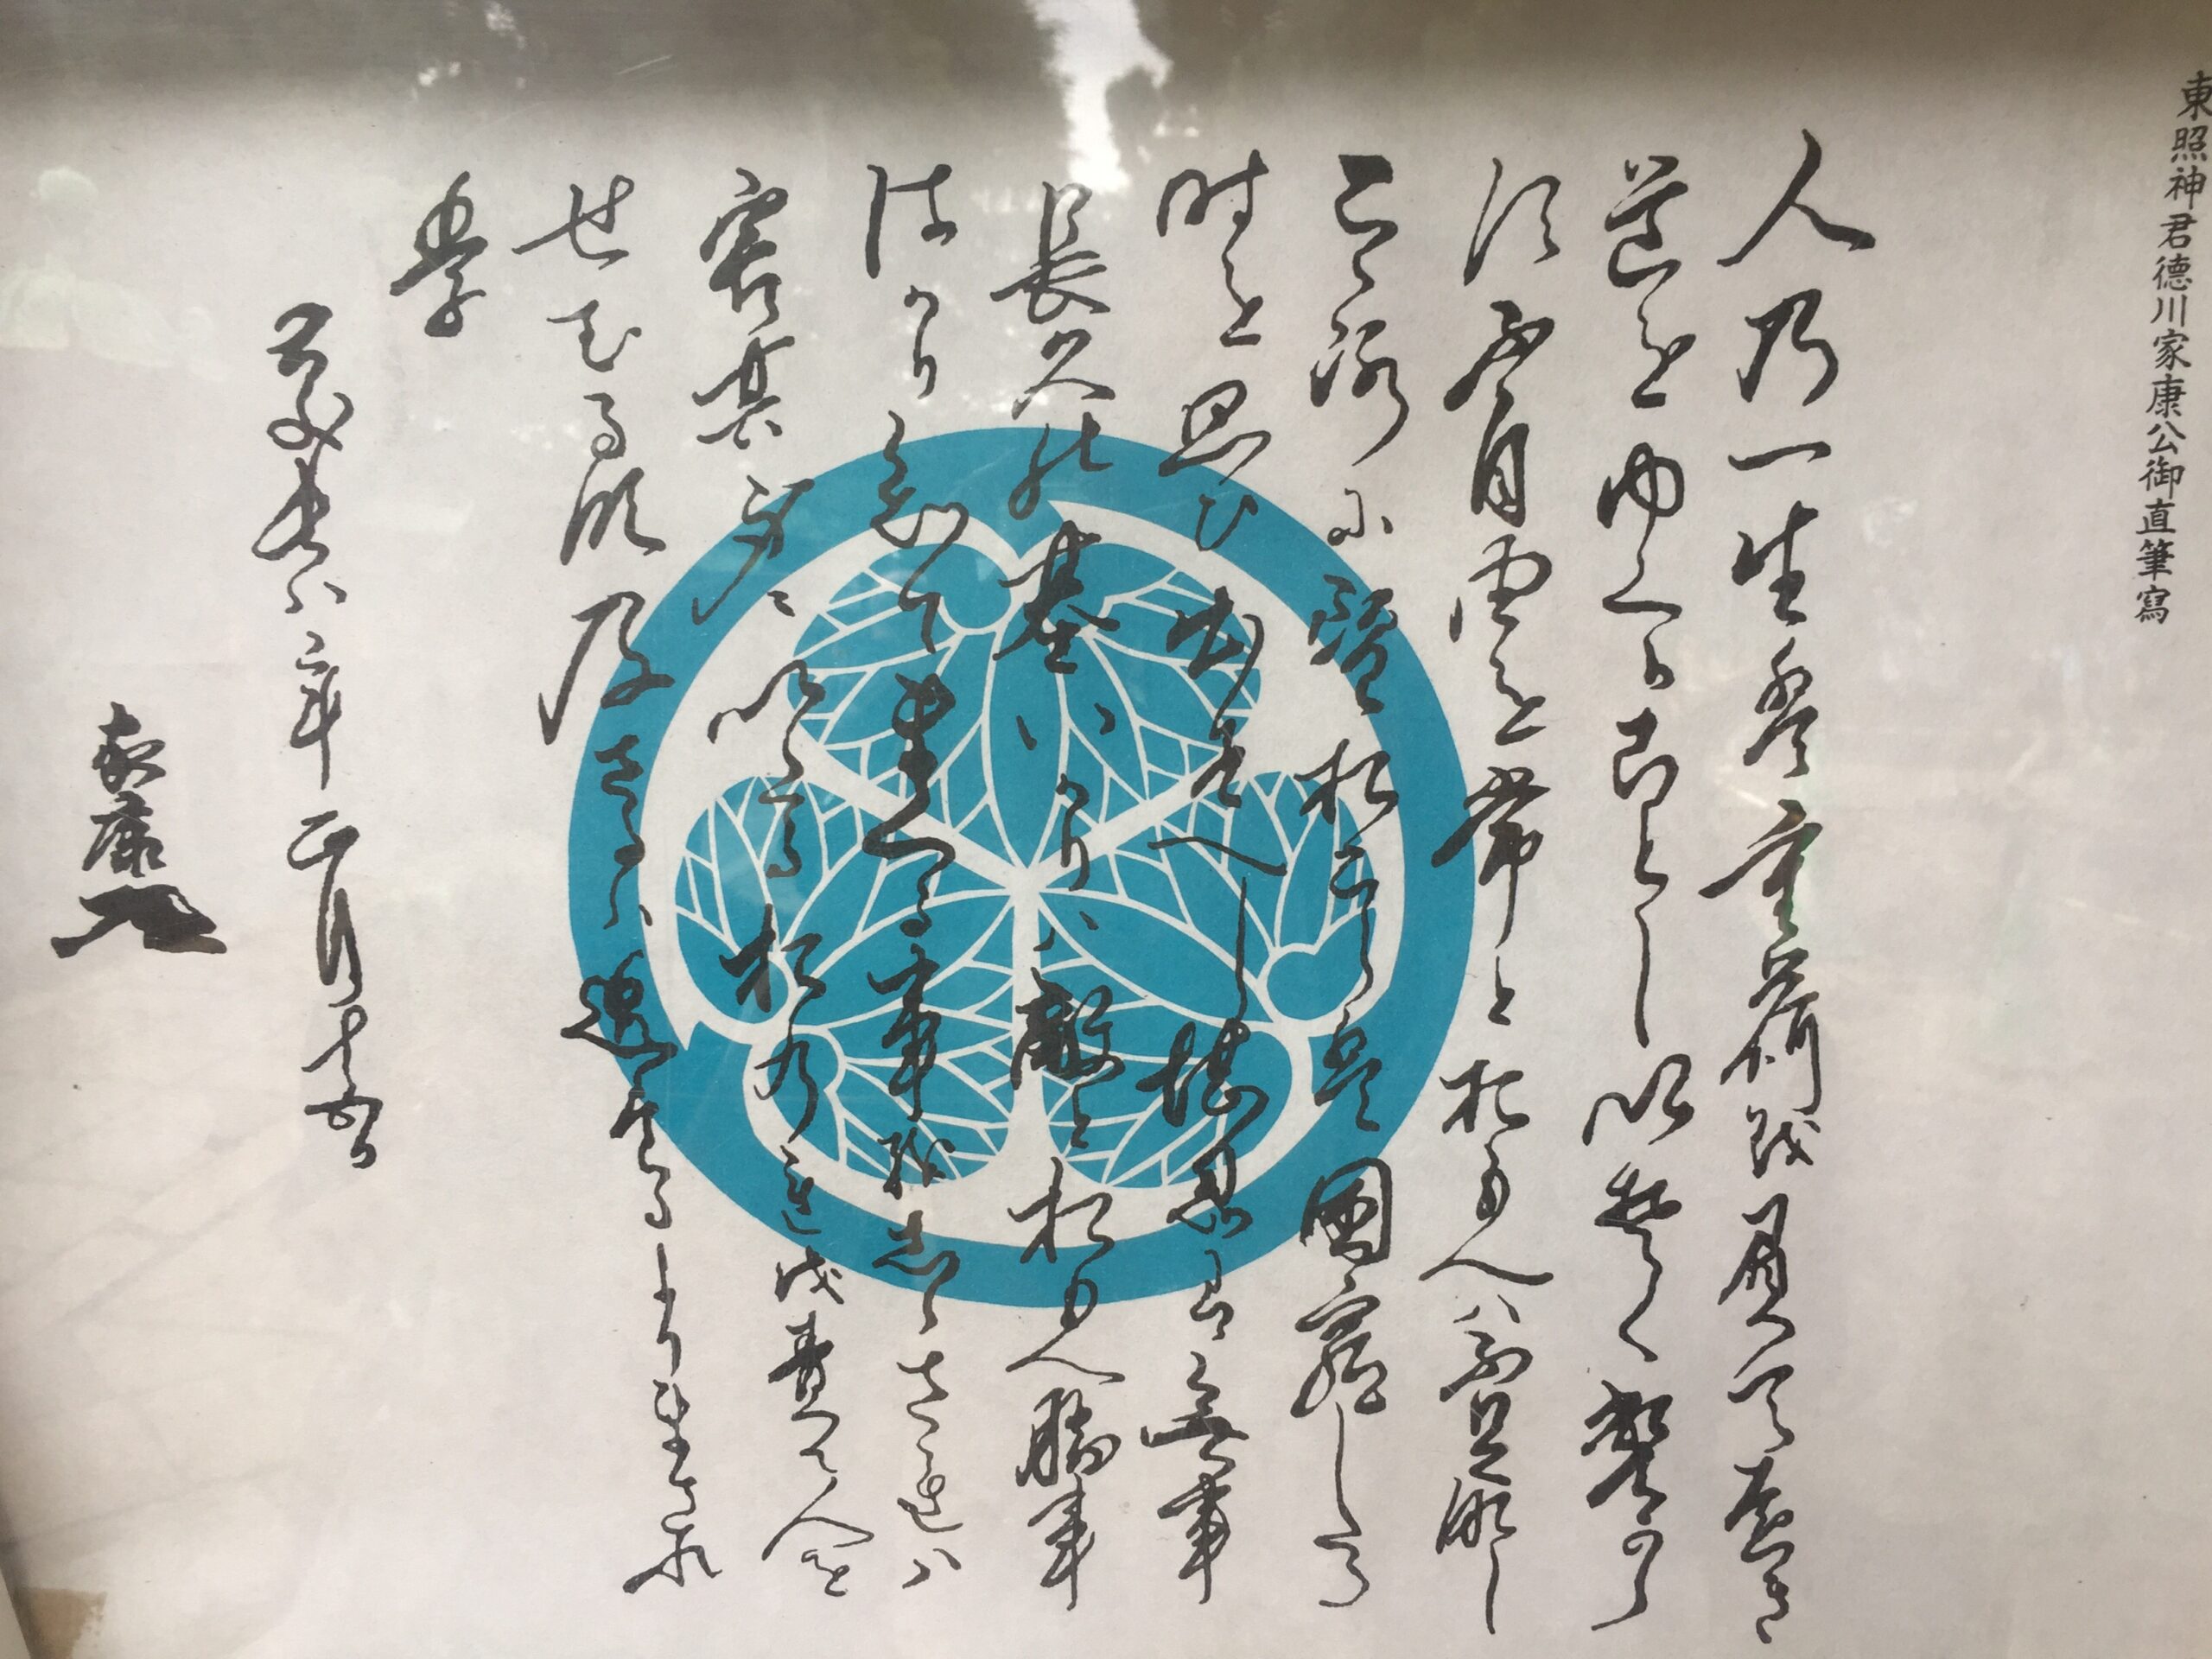 東照神君徳川家康公御直筆寫
人乃一生盤重荷越負て遠き
道をゆくかことし以楚く遍可ら
須不自由を常とおもへハ不足那し
こゝ路尓望おこら盤困窮したる
時を思ひ出春へし堪忍は無事
長久の基いかりハ敵とおもへ勝事
はかり知て末くる事越志らされハ
害其身尓以たるおのれ越責て人を
せむる那及さるハ過たるよりまされ
里
慶長八年正月十五日
家康